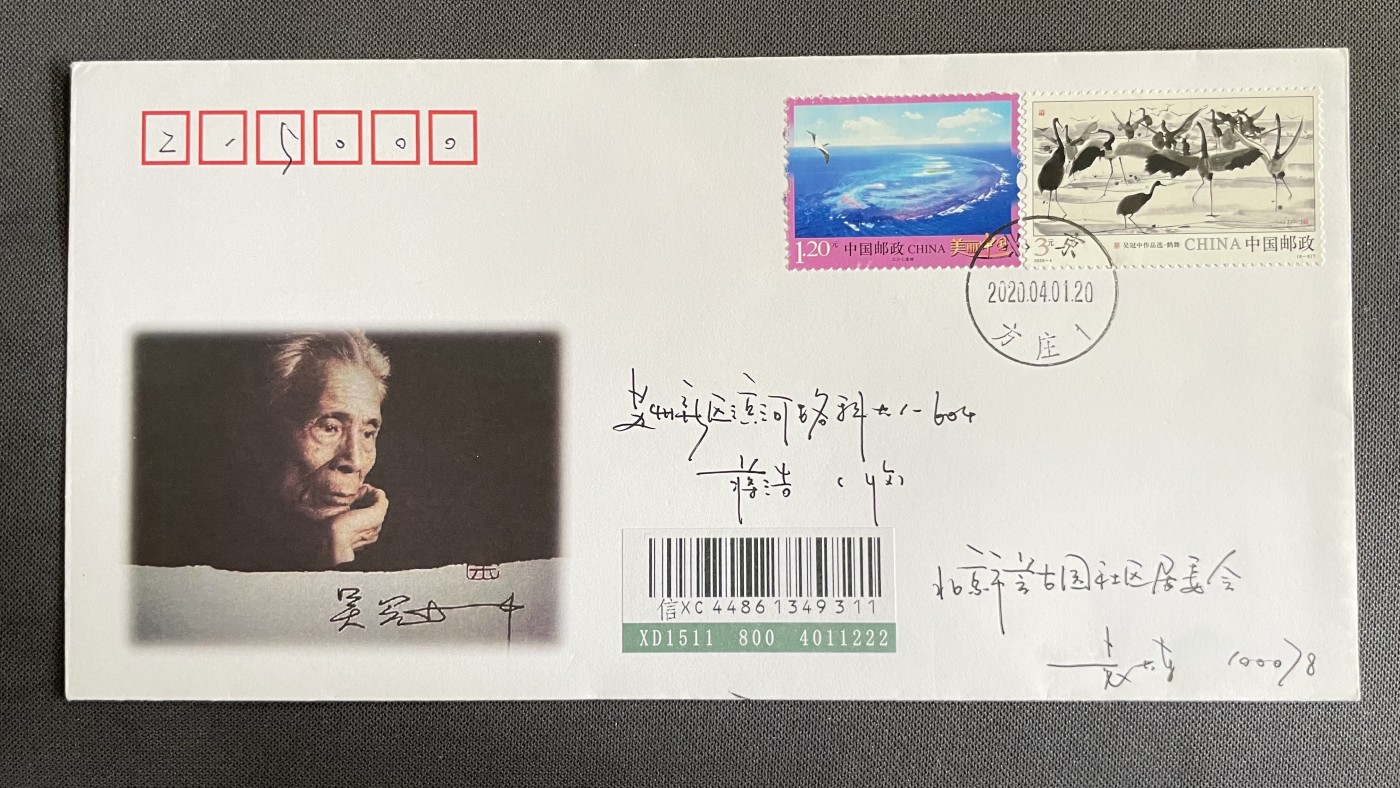 215000
1.20元 中国邮政 CHINA 美丽中国
3元 吴冠中作品选·鹤舞 CHINA 中国邮政
北京
2020.04.01.20
方庄1
苏州新区滨河路 604
蒋浩（收）
吴冠中
信XC44861349311
XD1511 800 4011222
北京市芳古园社区居委会
100078